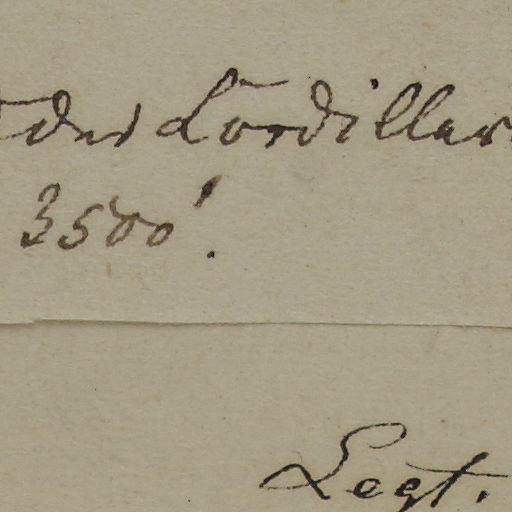 der Cordiller
3500'.
Legt.